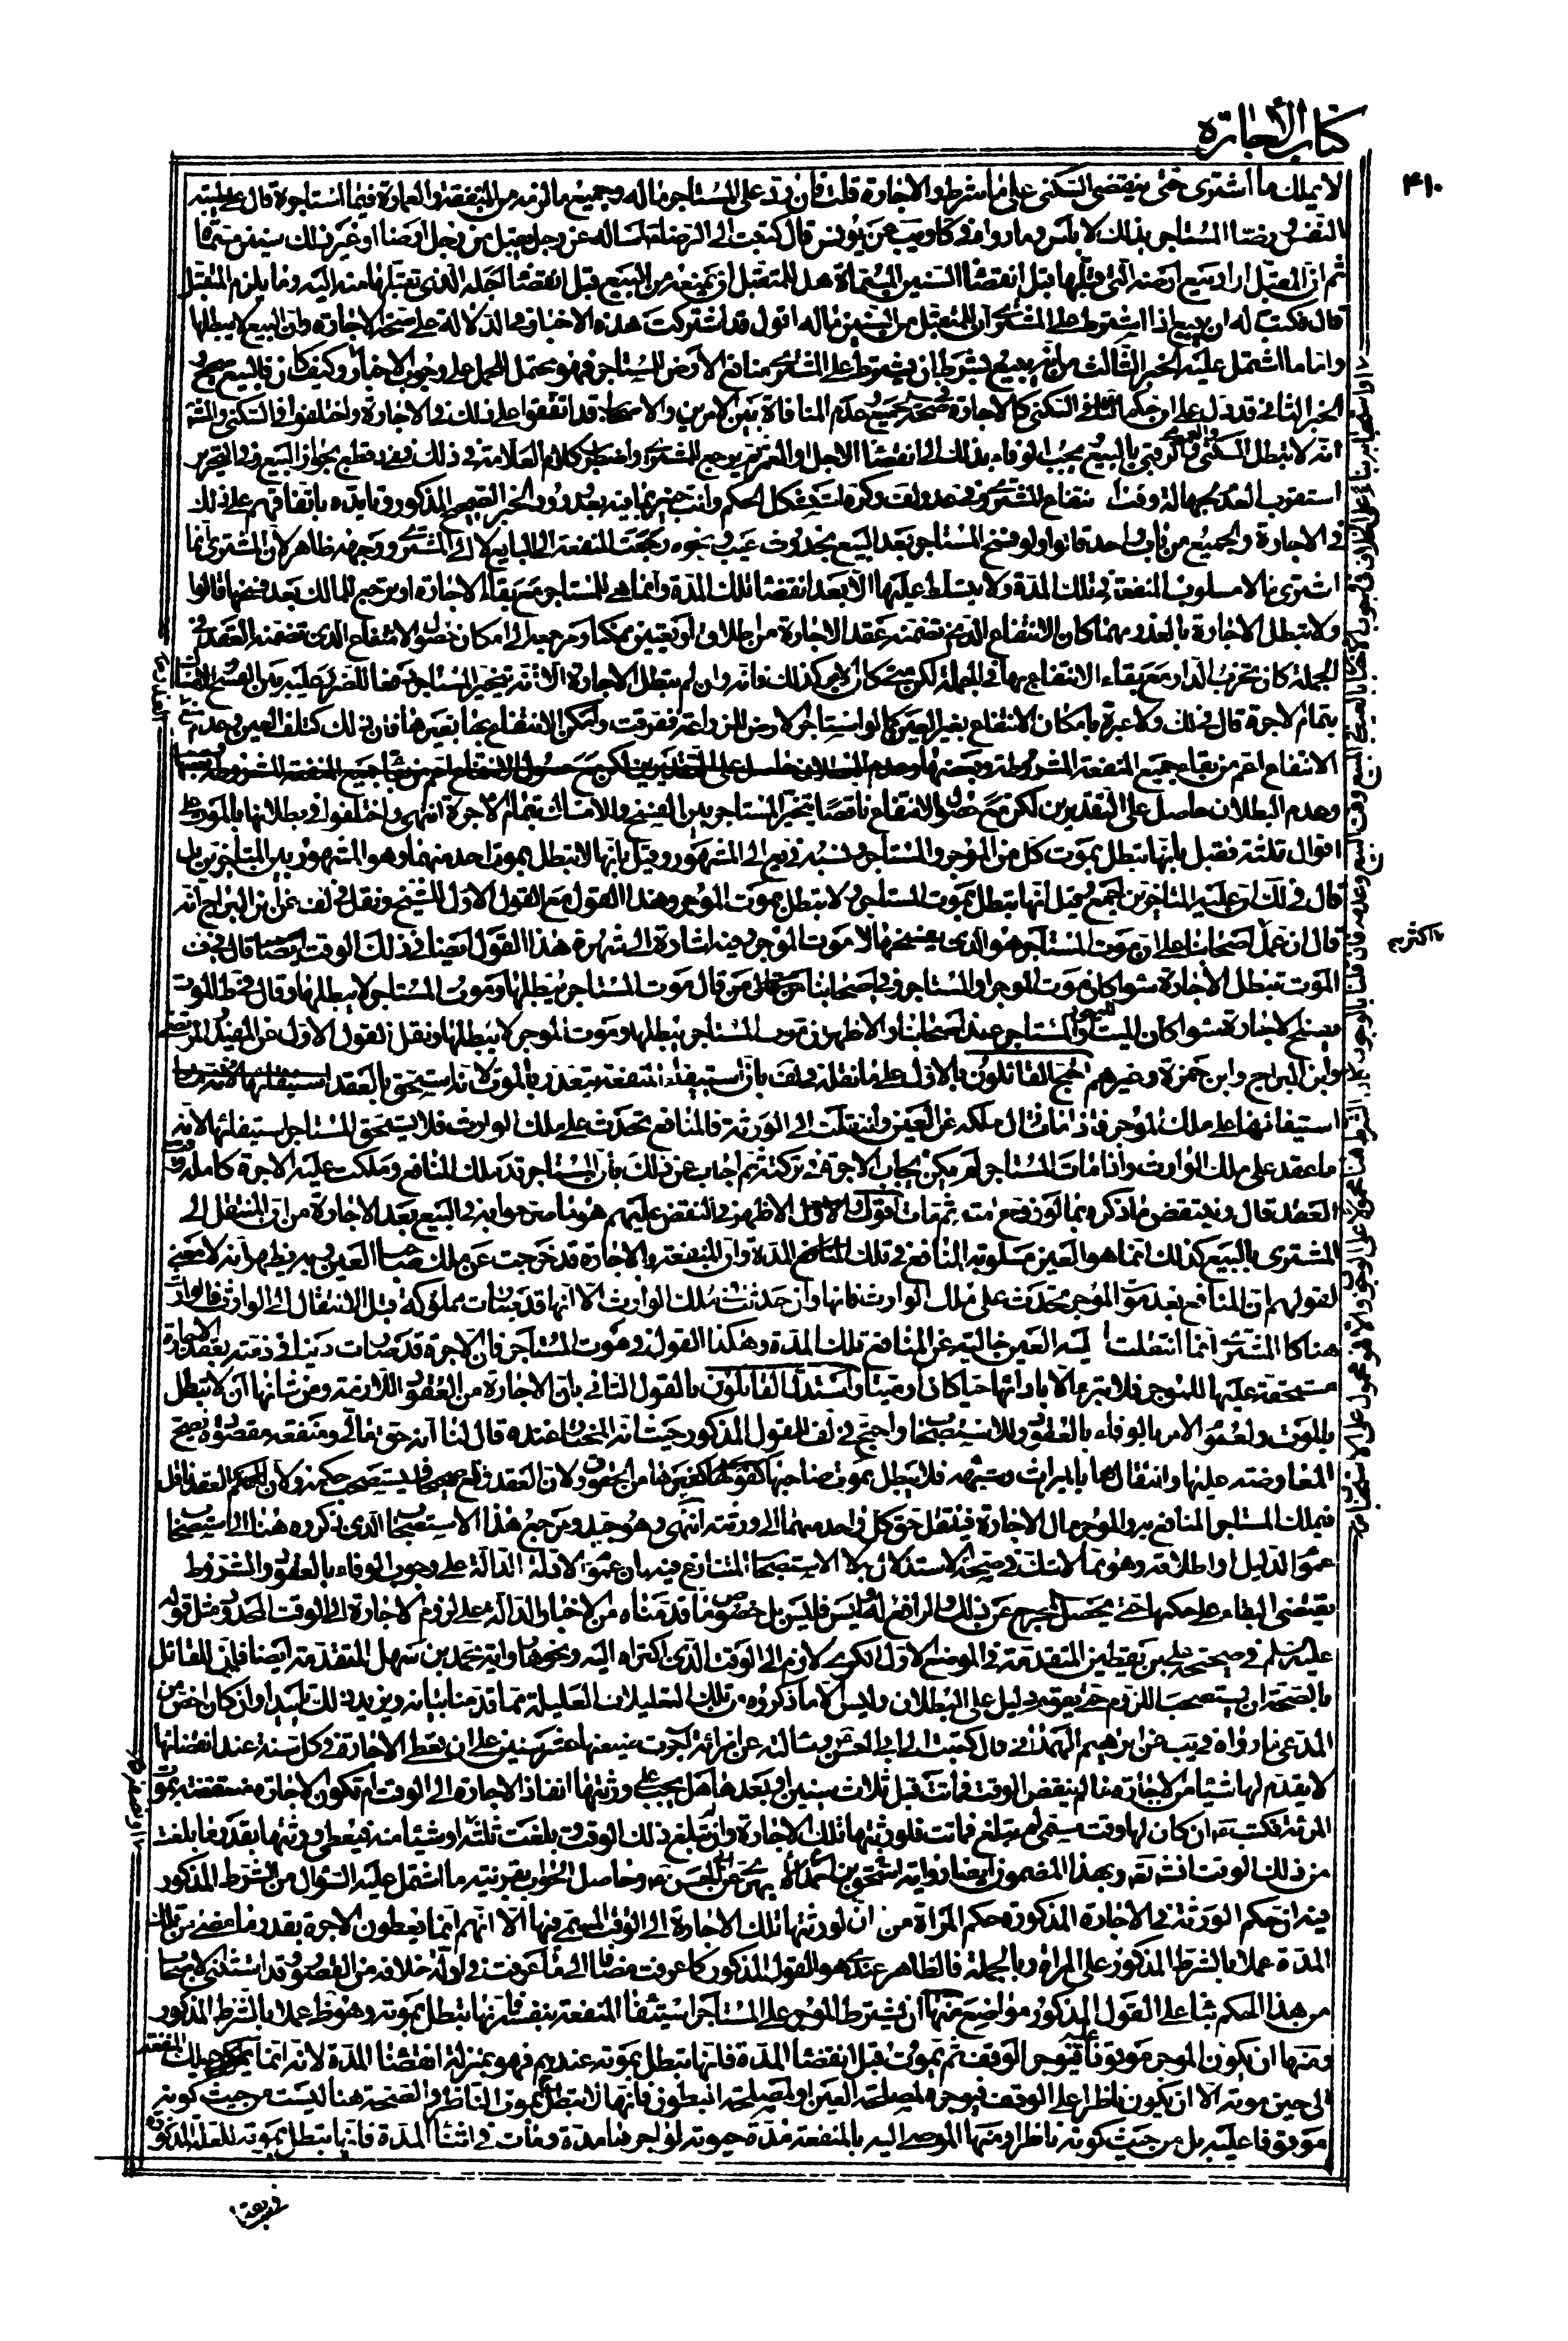 كتاب الأجارة
٤١٠
لا يملك ما اشترى حتى ينقضى السكنى على ما شرط والاجارة قلت فان رد على المستاجر ماله وجميع ما لزمه من النفقة والعمارة فيما استاجره قال على طيبة
النفس ورضا المستاجر بذلك لا باس وما رواه فى كا ويب عن يونس قال كتبت الى الرضا اساله عن رجل تقبل من رجل ارضا او غير ذلك سنين مسماة
ثم ان المقبل اراد بيع ارضه التى قبلها قبل انقضاء السنين المسماة هل للمتقبل ان يمنعه من البيع قبل انقضاء اجله الذى تقبلها منه اليه وما يلزم المتقبل
قال فكتب له ان يبيع اذا اشترط على المشترى ان للمتقبل من السنين ماله اقول قد اشتركت هذه الاخبار فى الدلالة على صحة الاجارة وان البيع لا يبطلها
واما ما اشتمل عليه الخبر الثالث من انه يبيع بشرط ان يشترط على المشترى منافع الارض للمستاجر فهو محتمل للحمل على وجوب الاخبار وكيف كان فالبيع صحيح
الخبر الثانى قد دل على ان حكم السكنى كالاجارة فى صحة الجميع عدم المنافاة بين الامرين والاصحاب قد اتفقوا على ذلك فى الاجارة واختلفوا فى السكنى والمش
انه لا تبطل السكنى والعمرى والرقبى بالبيع بل يجب الوفاء بذلك الى انقضاء الاجل او العمر ثم يرجع للمشترى واضطرب كلام العلامة فى ذلك ففى د قطع بجواز البيع وفى التحرير
استقرب العدم لجهالة وقت انتفاع المشترى وفى عد ولف وكره استشكل الحكم وانت خبير بما فيه بعد ورود الخبر الصحيح المذكور وتايده باتفاقهم على ذلك
فى الاجارة والجميع من باب واحد قالوا ولو فسخ المستاجر بعد البيع بحدوث عيب ونحوه رجعت المنفعة الى البايع لا الى المشترى ووجهه ظاهر لان المشترى انما
اشترى مالا مسلوب المنفعة فى تلك المدة ولا يتسلط عليها الا بعد انقضاء تلك المدة وانما هى للمستاجر مع بقاء الاجارة او ترجع للمالك بعد فسخها قالوا
ولا تبطل الاجارة بالعذر مهما كان الانتفاع الذى تضمنه عقد الاجارة من اطلاق او تعيين ممكنا ومرجعه الى امكان حصول الانتفاع الذى تضمنه العقد فى
الجملة كان تخرب الدار مع بقاء الانتفاع بها فى الجملة لكن متى كان الامر كذلك فانه وان لم تبطل الاجارة الا انه يتخير المستاجر دفعا للضرر عليه بين الفسخ والامضاء
بتمام الاجرة قال فى لك ولا عبرة بامكان الانتفاع بغير المعين كما لو استاجر الارض للزراعة فغرقت وامكن الانتفاع بها بغيرها فان ذلك كتلف العين وعدم منع
الانتفاع اعم من بقاء جميع المنفعة المشروطة وبعضها
وعدم البطلان حاصل على التقديرين لكن مع حصول الانتفاع ناقصا يتخير المستاجر بين الفسخ والامساك بتمام الاجرة انتهى واختلفوا فى بطلانها بالموت على
اقوال ثلثة فقيل بانها تبطل بموت كل من الموجر والمستاجر ونسبه فى يع الى المشهور وقيل بانها لا تبطل بموت احد منهما وهو المشهور بين المتاخرين بل
قال فى لك ان عليه المتاخرين اجمع وقيل انها تبطل بموت المستاجر ولا تبطل بموت الموجر وهذا القول مع القول الاول للشيخ ونقل فى لف عن ابن البراج انه
قال ان عمل اصحابنا على ان موت المستاجر هو الذى يفسخها لا موت الموجر وفيه اشارة الى شهرة هذا القول ايضا فى ذلك الوقت ايضا قال فى ف
الموت تبطل الاجارة سواء كان موت الموجر او المستاجر وفى اصحابنا من قال موت المستاجر يبطلها وموت المستاجر لا يبطلها وقال فى ط الموت
يفسخ الاجارة سواء كان الميت الموجر او المستاجر عند اصحابنا والاظهر ان موت المستاجر يبطلها وموت الموجر لا يبطلها ونقل القول الاول عن المفيد والمرتضى
وابن البراج وابن حمزة وغيرهم احتج القائلون بالاول على ما نقله فى لف بان استيفاء المنفعة يتعذر بالموت لانه استحق بالعقد
استيفائها على ملك الموجر فاذا مات زال ملكه عن العين وانتقلت الى الورثة فالمنافع تحدث على ملك الوارث فلا يستحق المستاجر استيفائها لانه
ما عقد على ملك الوارث واذا مات المستاجر لم يمكن ايجاب الاجرة فى تركته ثم اجاب عن ذلك بان المستاجر قد ملك المنافع وملكت عليه الاجرة كاملة وقت
العقد قال وينتقض ما ذكروه بما لو زوج امته ثم مات اقول والاول الاظهر فى النقض عليهم هو ما صرحوا به فى البيع بعد الاجارة من ان المنتقل الى
المشترى بالبيع كذلك انما هو العين مسلوبة المنافع فى تلك المدة وان المنفعة بالاجارة قد خرجت عن ملك صاحب العين وبه يظهر انه لا معنى
لقولهم ان المنافع بعد موت الموجر تحدث على ملك الوارث فانها وان حدثت فى ملك الوارث الا انها قد صارت مملوكة قبل الانتقال الى الوارث فالوارث
هنا كالمشترى انما انتقلت اليه العين خالية عن المنافع تلك المدة وهكذا القول فى موت المستاجر فان الاجرة قد صارت دينا فى ذمته بعقد الاجارة
مستحقة عليها للموجر فلا تبرء الا بادائها حيا كان او ميتا واستدل القائلون بالقول الثانى بان الاجارة من العقود اللازمة ومن شانها ان لا تبطل
بالموت ولعموم الامر بالوفاء بالعقود وللاستصحاب واحتج فى لف للقول المذكور حيث انه المختار عنده قال لنا انه حق مالى ومنفعة مقصودة يصح
المعاوضة عليها وانتقالها بالميراث وشبهه فلا يبطل بموت صاحبها كغيرها من الحقوق ولان العقد وقع صحيحا فيستصحب حكمه ولان العقد ناقل
فيملك المستاجر المنافع به والموجر مال الاجارة فينتقل حق كل واحد منهما الى ورثته انتهى وهو جيد ومرجع هذا الاستصحاب الذى ذكروه هنا الى استصحاب
عموم الدليل او اطلاقه وهو مما لا شك فى صحة الاستدلال به لا الاستصحاب المتنازع فيه فان عموم الادلة الدالة على وجوب الوفاء بالعقود والشروط
يقتضى البقاء على حكمها حتى يحصل المخرج عن ذلك والرافع له وليس فليس بل خصوص ما قدمناه من الاخبار الدالة على لزوم الاجارة الى الوقت المحدود مثل قوله
عليه السلام فى صحيحة على بن يقطين المتقدمة فى الموضع الاول الكرى لازم الى الوقت الذى اكتراه اليه ونحوها رواية محمد بن سهل المتقدمة ايضا فان للقائل
بالصحة ان يستصحب اللزوم حتى يقوم دليل على البطلان وليس الا ما ذكروه من تلك التعليلات العليلة مما قدمنا بيانه ويزيد ذلك تاييدا وان كان اخص من
المدعى ما رواه فى يب عن ابراهيم الهمذانى قال كتبت الى ابى الحسن وسالته عن امراة آجرت ضيعتها عشر سنين على ان تعطى الاجارة فى كل سنة عند انقضائها
لا يقدم لها شيئا من الاجارة ما لم ينقض الوقت فماتت قبل ثلاث سنين او بعدها هل يجب على ورثتها انفاذ الاجارة الى الوقت ام تكون الاجارة منتقضة بموت
المراة فكتب ان كان لها وقت مسمى لم تبلغ فماتت فلورثتها تلك الاجارة وان لم تبلغ ذلك الوقت وبلغت ثلثه او شيئا منه فيعطى ورثتها بقدر ما بلغت
من ذلك الوقت انشاء الله وبهذا المضمون ايضا رواية احمد بن اسحق الابهرى عن ابى الحسن وحاصل الجواب بقرينة ما اشتمل عليه السؤال من الشرط المذكور
فيه ان حكم الورثة فى الاجارة المذكورة حكم المراة من ان لورثتها تلك الاجارة الى الوقت المسمى فيها الا انهم انما يعطون الاجرة بقدر ما مضى من تلك
المدة عملا بالشرط المذكور على المراة وبالجملة فالظاهر عندى هو القول المذكور كما عرفت مضافا الى ما عرفت فى ادلة خلافه من القصور وقد استثنى الاصحاب
من هذا الحكم بناء على القول المذكور مواضع منها ان يشترط الموجر على المستاجر استيفاء المنفعة بنفسه فانها تبطل بموته وهو ظ عملا بالشرط المذكور
ومنها ان يكون الموجر موقوفا عليه فيوجر الوقف ثم يموت قبل انقضاء المدة فانها تبطل بموته عندهم فهو بمنزلة انقضاء المدة لانه انما يملك المنفعة
الى حين موته الا ان يكون ناظرا على الوقف فيوجره لمصلحة العين او لمصلحة البطون فانها لا تبطل بموت الناظر والصحة هنا ليست من حيث كونه
موقوفا عليه بل من حيث كونه ناظرا ومنها الموصى اليه بالمنفعة مدة حيوته لو آجرها مدة ومات فى اثناء المدة فانها تبطل بموته للعلة المذكورة